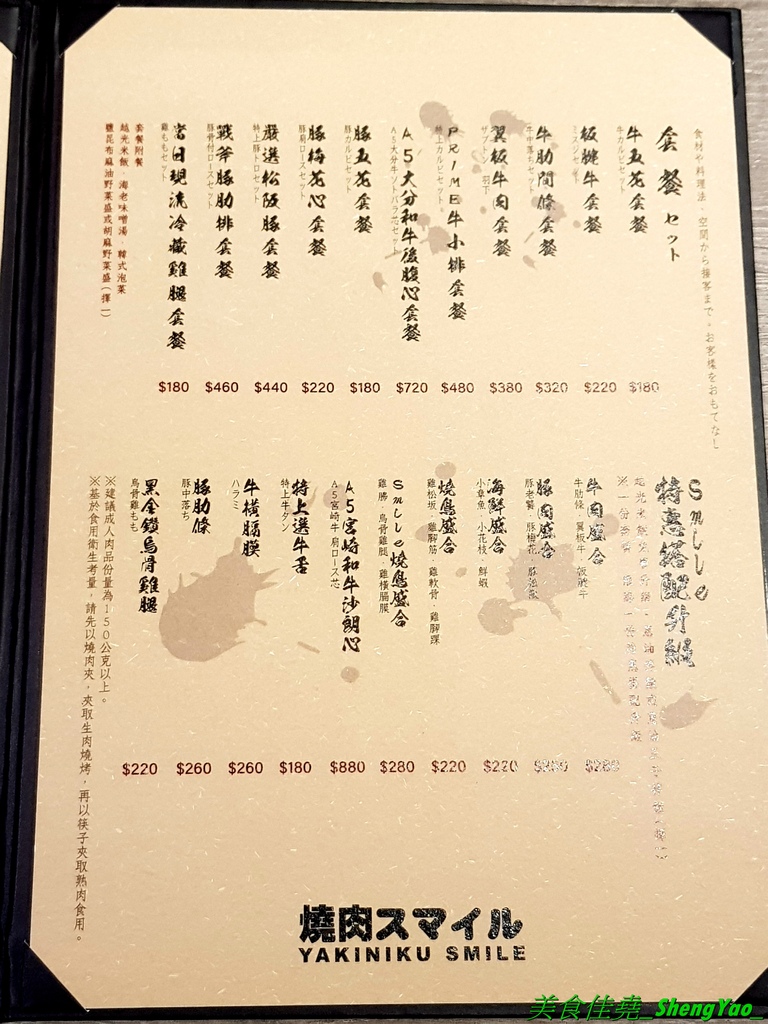 食材や料理法、空間から接客まで。お客様をおもてなし
套餐 セット
牛五花套餐
牛カルビセット
$180
板腱牛套餐
ミスジセット
$220
牛肋間條套餐
牛中落ちセット
$320
翼板牛肉套餐
$380
PRIME牛小排套餐
特上カルビセット
$480
A5大分和牛後腹心套餐
$720
豚五花套餐
豚カルビセット
$180
豚梅花心套餐
豚肩ロースセット
$220
嚴選松阪豚套餐
特上豚トロセット
$440
戰斧豚肋排套餐
豚骨付ロースセット
$460
當日現流冷藏雞腿套餐
雞ももセット
$180
套餐附餐
越光米飯、海老味噌湯、韓式泡菜
鹽昆布麻油野菜盛或胡麻野菜盛(擇一)
Smile
特惠搭配升級
牛肉盛合
牛肋條、翼板牛、板腱牛
豚肉盛合
海鮮盛合
小章魚、小花枝、鮮蝦
$220
燒鳥盛合
雞松坂、雞腳筋、雞軟骨、雞腳踝
$220
Smile燒鳥盛合
雞胗、烏骨雞腿、雞橫膈膜
$280
A5宮崎和牛沙朗心
A5宮崎牛肩ロース芯
$880
特上選牛舌
特上牛タン
$180
牛橫膈膜
ハラミ
$260
豚肋條
豚中落ち
$260
黑金鑽烏骨雞腿
烏骨雞もも
$220
※建議成人肉品份量為150公克以上。
※基於食用衛生考量，請先以燒肉夾，夾取生肉燒烤，再以筷子夾取熟肉食用。
燒肉スマイル
YAKINIKU SMILE
美食佳堯_ShengYao_